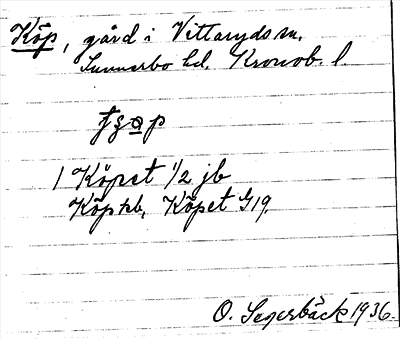 Köp, gård i Vittaryds sn.
Sunnerbo hd. Kronob. l.
1 Köpet 1/2 jb
Köp hb, Köpet G19.
O. Segerbäck 1936.